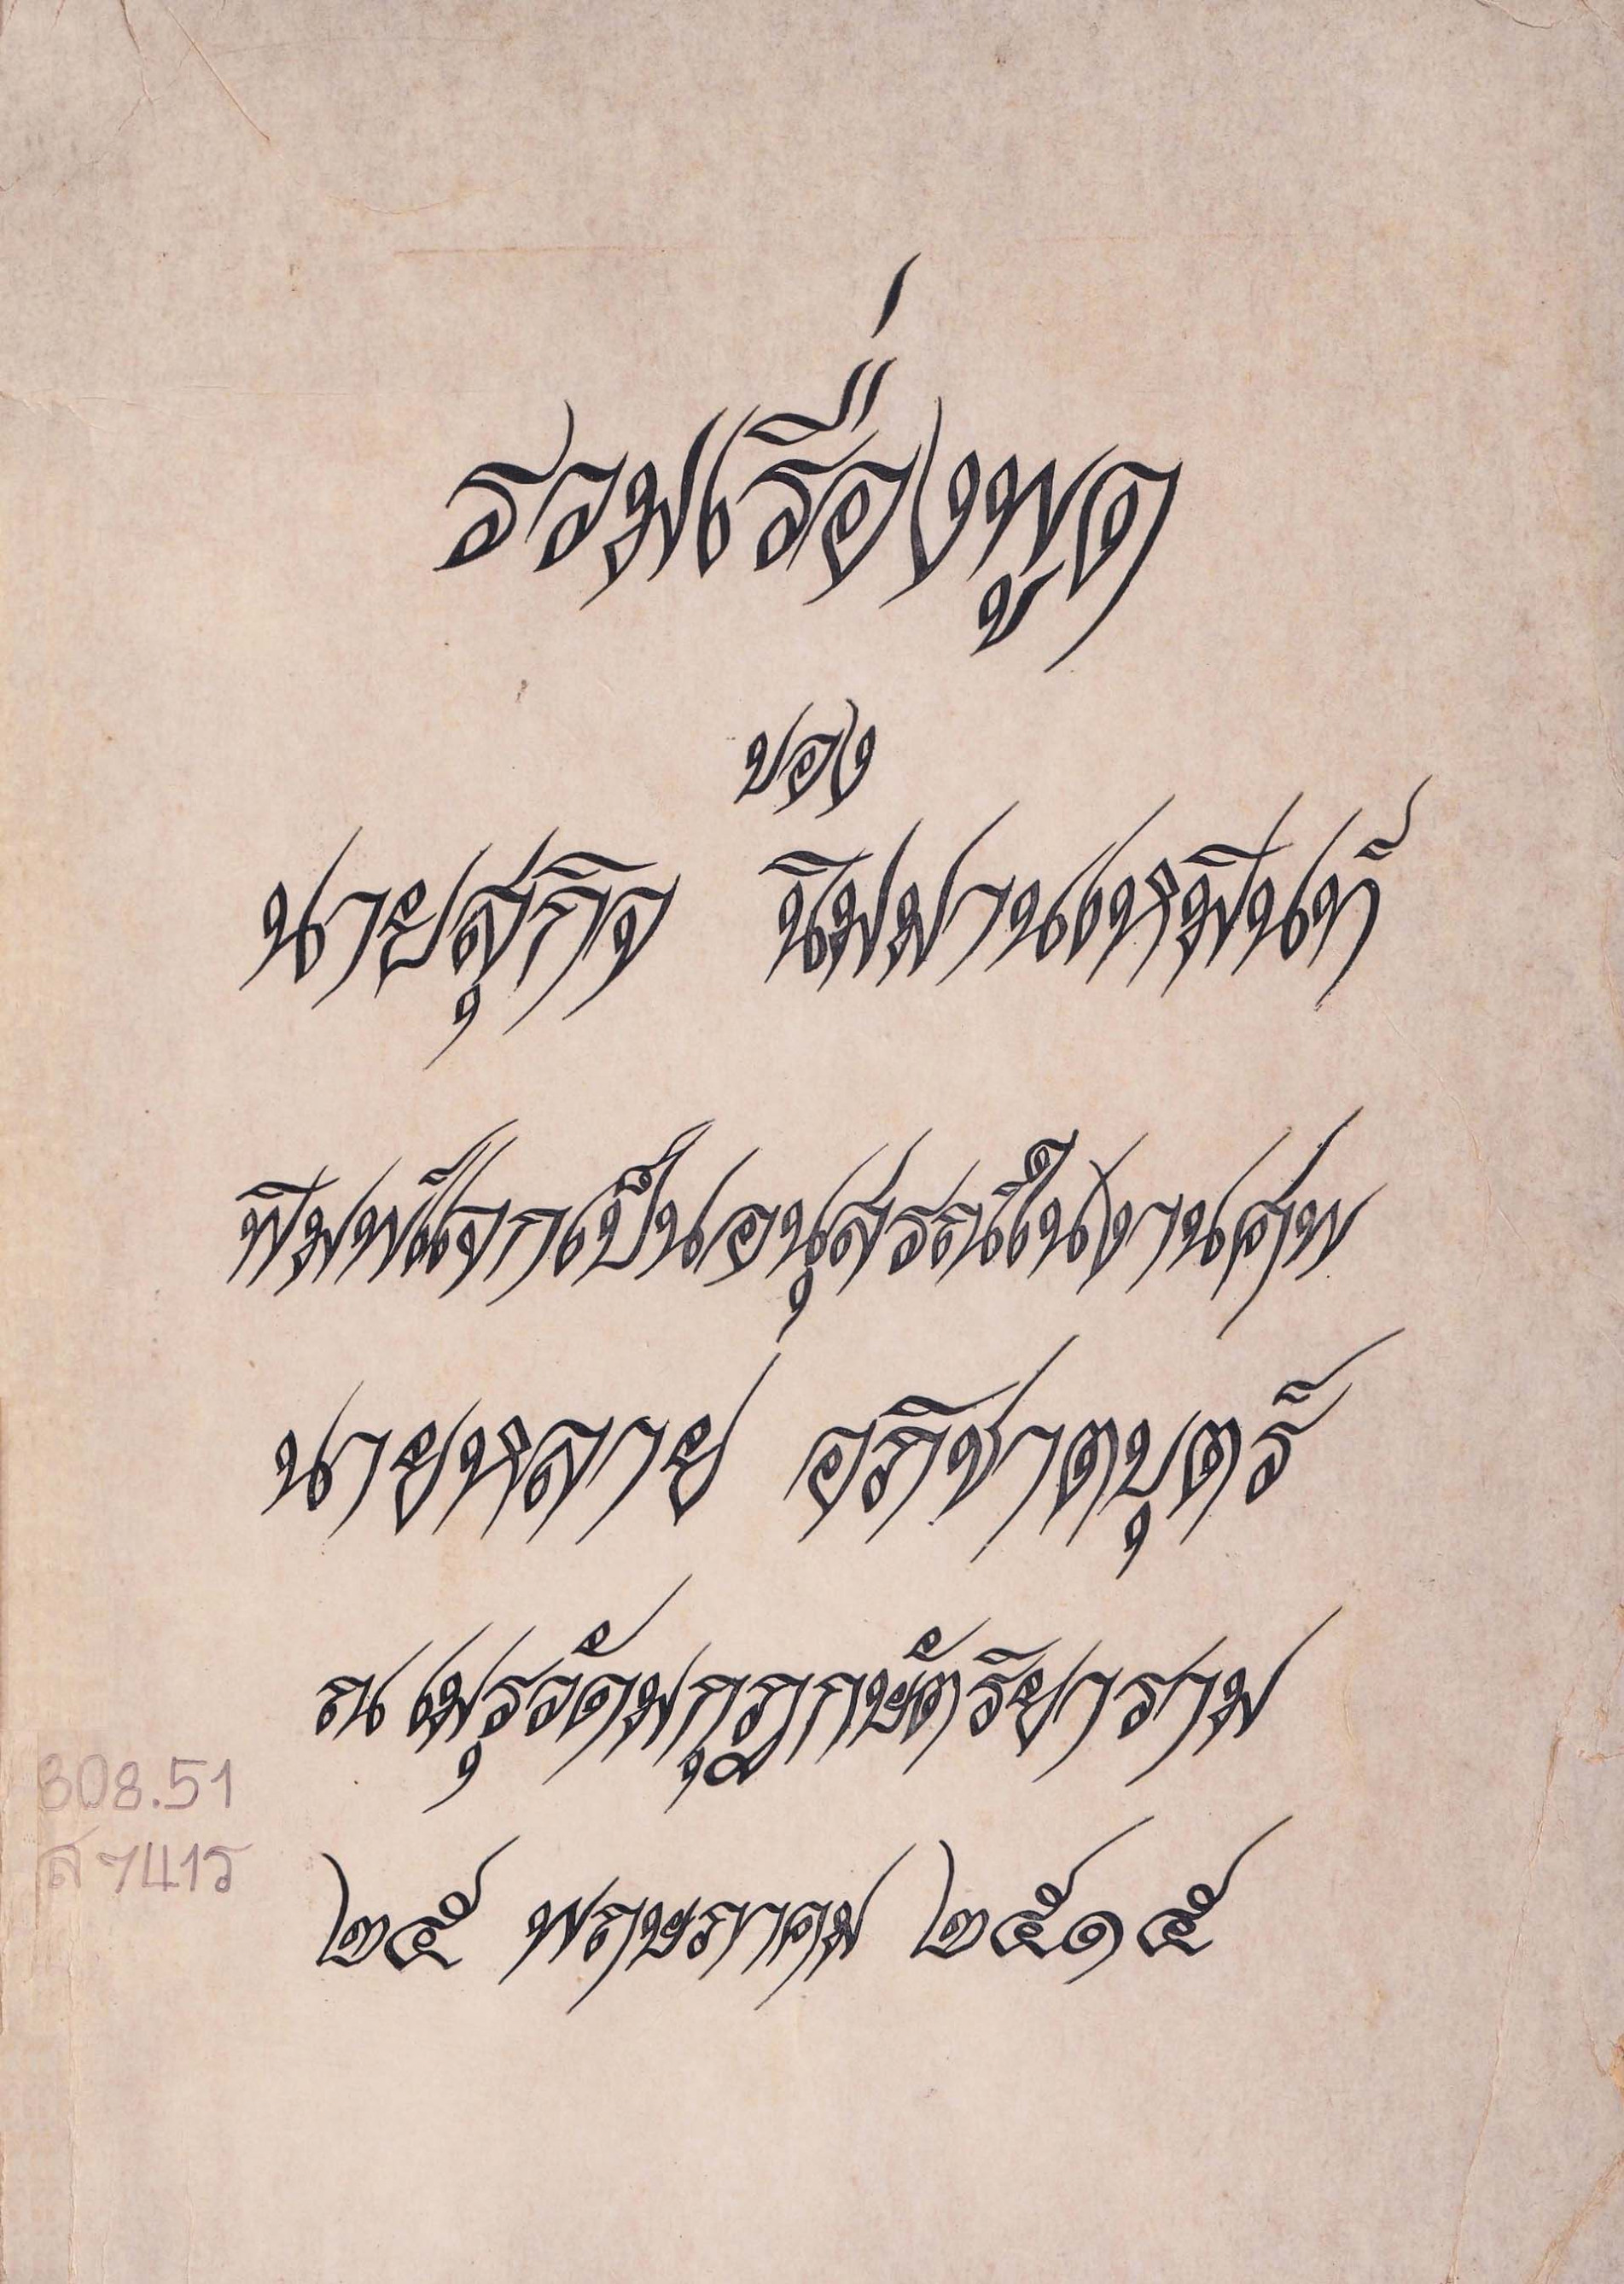 รวมเรื่องพูด
ของ
นายสุกิจ นิมมานเหมินท์
พิมพ์แจกเป็นอนุสรณ์ในงานศพ
นายหลาย อภิชาตบุตร์
ณ เมรุวัดมกุฏกษัตริยาราม
808.51
ส 741ร
๒๕ พฤษภาคม ๒๕๑๕